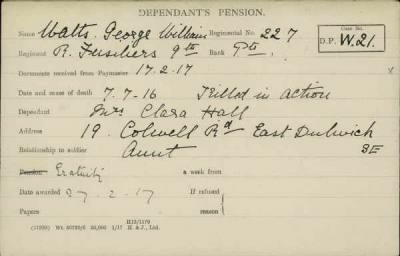 DEPENDANT'S PENSION.
Name Watts. George William Regimental No. 227
Case No.
D.P. W.21.
Regiment R. Fusiliers 9th Rank Pte.
Documents received from Paymaster 17.2.17
Date and cause of death 7.7.16 Killed in action
Dependant Mrs Clara Hall
Address 19. Colwell Rd East Dulwich
SE
Relationship to soldier Aunt
Pension Gratuity a week from
Date awarded 27.2.17 If refused
Papers reason
H13/1179
Wt. 50,000 1/17 H. & J., Ltd.